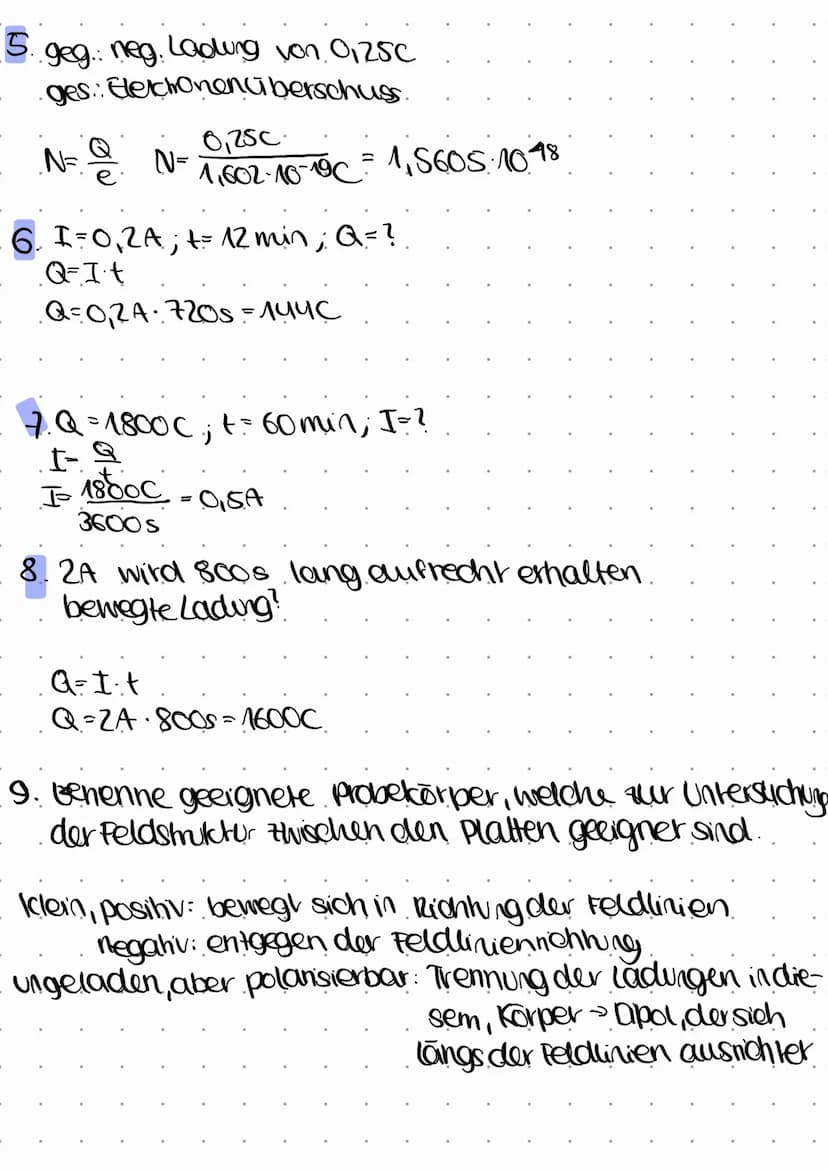 5. geg.: neg. Ladung von 0,25C
ges.: Elektronenüberschuss
N= Q/e N= 0,25C / 1,602·10⁻¹⁹C = 1,5605·10¹⁸
6. I=0,2A ; t= 12min ; Q=?
Q=I·t
Q=0,2A·720s=144C
7. Q=1800C ; t= 60min ; I=?
I= Q/t
I= 1800C / 3600s = 0,5A
8. 2A wird 800s lang aufrecht erhalten
bewegte Ladung?
Q=I·t
Q=2A·800s=1600C
9. Benenne geeignete Probekörper, welche zur Untersuchung
der Feldstruktur zwischen den Platten geeignet sind.
klein, positiv: bewegt sich in Richtung der Feldlinien
negativ: entgegen der Feldlinienrichtung
ungeladen, aber polarisierbar: Trennung der Ladungen in die-
sem, Körper → Dipol, der sich
längs der Feldlinien ausrichtet